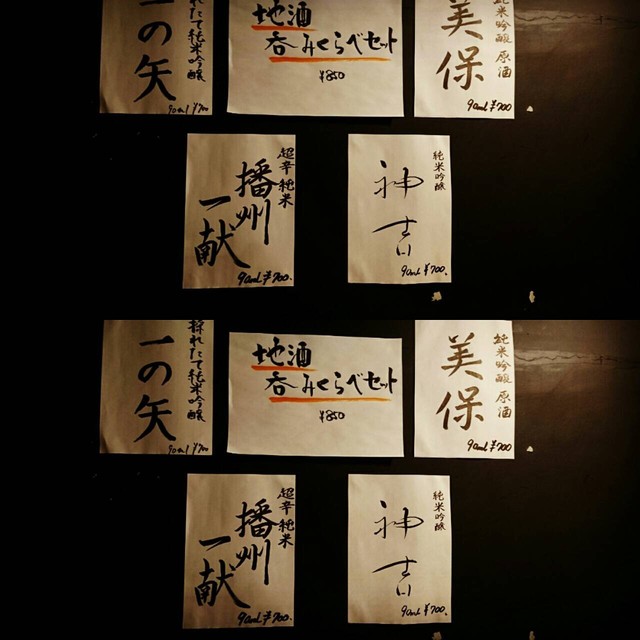 れたて純米吟醸
一の矢
90ml ¥700
地酒
呑みくらべセット
¥850
純米吟醸 原酒
美保
90ml ¥700
超辛純米
播州
一献
90ml ¥700.
純米吟醸
神吉
90ml ¥700.
採れたて純米吟醸
一の矢
90ml ¥700
地酒
呑みくらべセット
¥850
純米吟醸 原酒
美保
90ml ¥700
超辛純米
播州
一献
90ml ¥700.
純米吟醸
神吉
90ml ¥700.